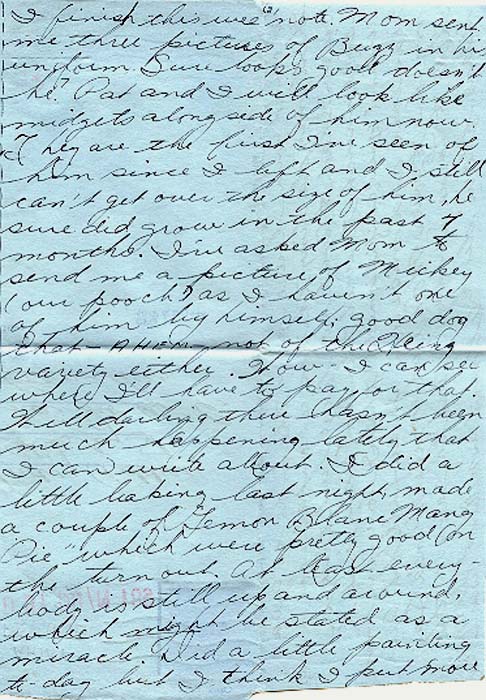 (2)
I finish this wee note. Mom sent
me three pictures of Bugz in his
uniform. Sure looks good doesn't
he? Pat and I will look like
midgets alongside of him now.
They are the first I've seen of
him since I left and I still
can't get over the size of him, he
sure did grow in the past 7
months. I've asked Mom to
send me a picture of Mickey
(our pooch) as I haven't one
of him by himself, good dog
that - AHEM not of the
variety either. Wow - I can see
where I'll have to pay for that.
Well darling there hasn't been
much happening lately that
I can write about. I did a
little baking last night, made
a couple of "Lemon Blanc Mang
Pie" which were pretty good on
the turn out. At least every-
body is still up and around,
which might be stated as a
miracle. Did a little painting
to-day but I think I put more